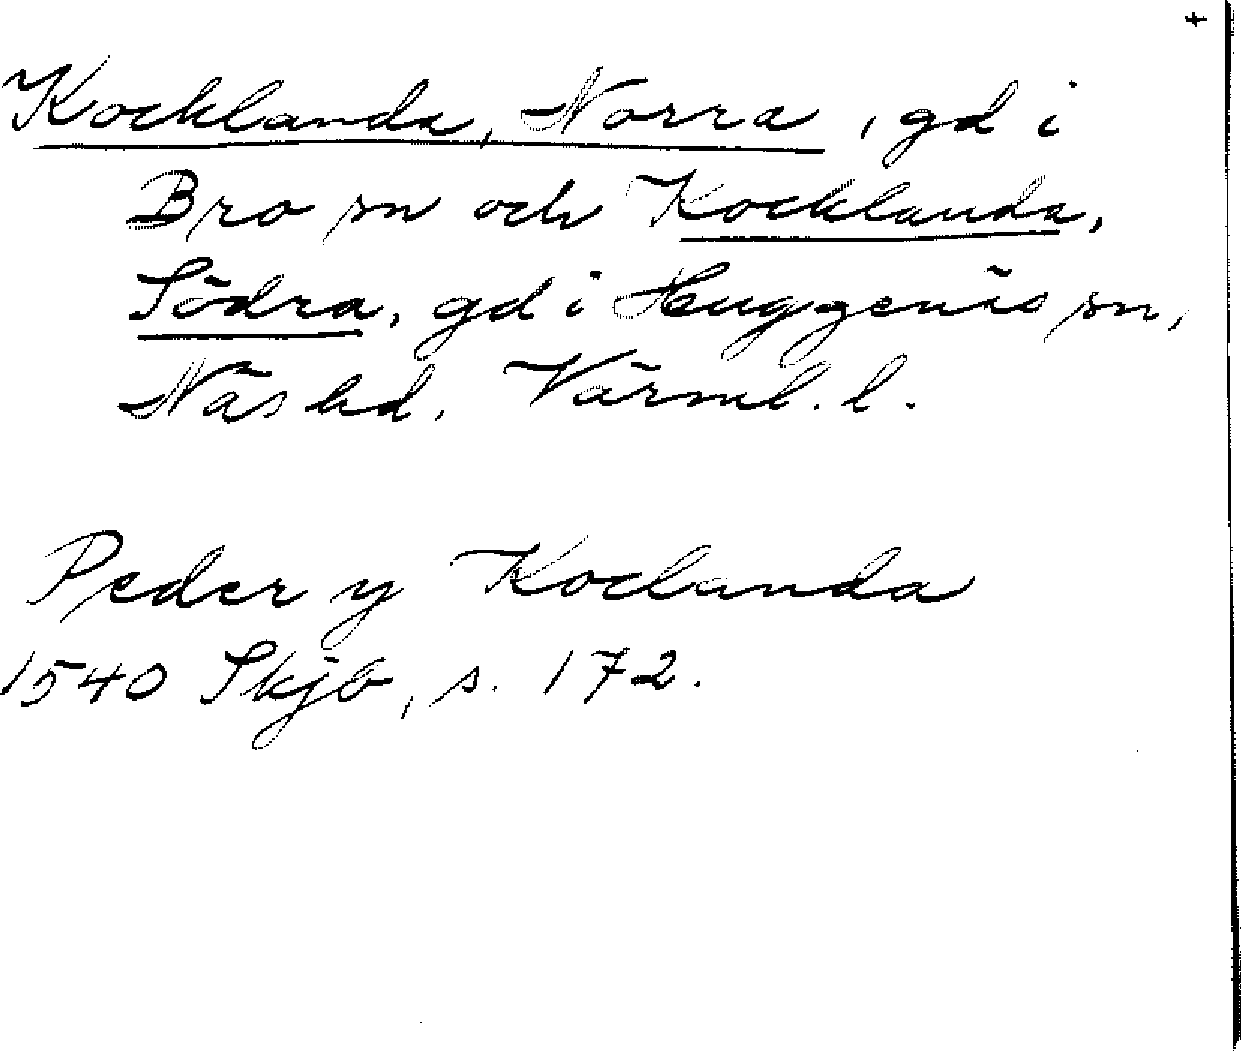 Kocklanda, Norra, gd i
Bro sn och Kocklanda,
Södra, gd i Huggenäs sn,
Näs hd. Värml. l.
Peder y Koclanda
1540 Skjb, s. 172.